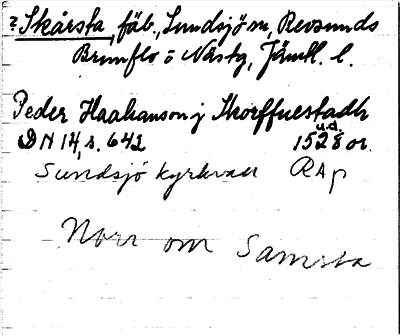 ? Skårsta, fäb., Sundsjö sn, Revsunds
Brunflo o Näs tg, Jämtl. l.
Peder Haakanson j Skorffuestadh
DN 14, s. 642 1528 u.d. or.
Sundsjö kyrkvall RAp
Norr om Samsta